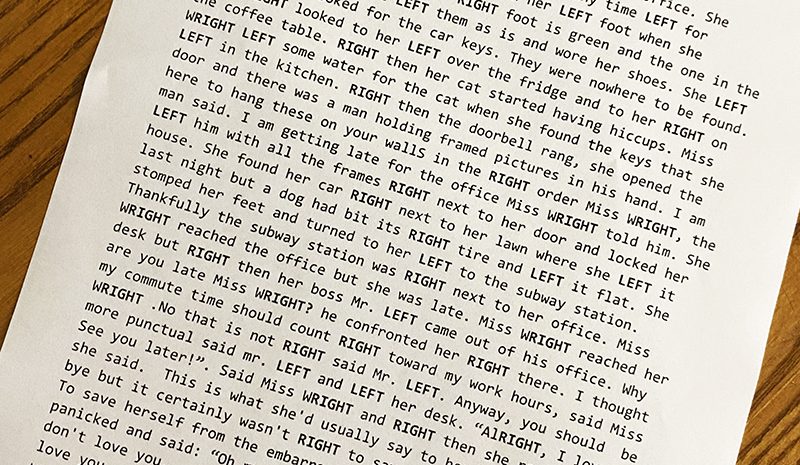 office. She
time LEFT for
her LEFT foot when she
RIGHT foot is green and the one in the
LEFT them as is and wore her shoes. She LEFT
for the car keys. They were nowhere to be found.
looked to her LEFT over the fridge and to her RIGHT on
the coffee table. RIGHT then her cat started having hiccups. Miss
WRIGHT LEFT some water for the cat when she found the keys that she
LEFT in the kitchen. RIGHT then the doorbell rang, she opened the
door and there was a man holding framed pictures in his hand. I am
here to hang these on your wallS in the RIGHT order Miss WRIGHT, the
man said. I am getting late for the office Miss WRIGHT told him. She
LEFT him with all the frames RIGHT next to her door and locked her
house. She found her car RIGHT next to her lawn where she LEFT it
last night but a dog had bit its RIGHT tire and LEFT it flat. She
stomped her feet and turned to her LEFT to the subway station.
Thankfully the subway station was RIGHT next to her office. Miss
WRIGHT reached the office but she was late. Miss WRIGHT reached her
desk but RIGHT then her boss Mr. LEFT came out of his office. Why
are you late Miss WRIGHT? he confronted her RIGHT there. I thought
my commute time should count RIGHT toward my work hours, said Miss
WRIGHT .No that is not RIGHT said Mr. LEFT. Anyway, you should be
more punctual said mr. LEFT and LEFT her desk. “AlRIGHT, I
See you later!”. Said Miss WRIGHT and RIGHT then she
she said. This is what she'd usually say to
bye but it certainly wasn't RIGHT to
To save herself from the
panicked and said: “Oh
don't love you
love